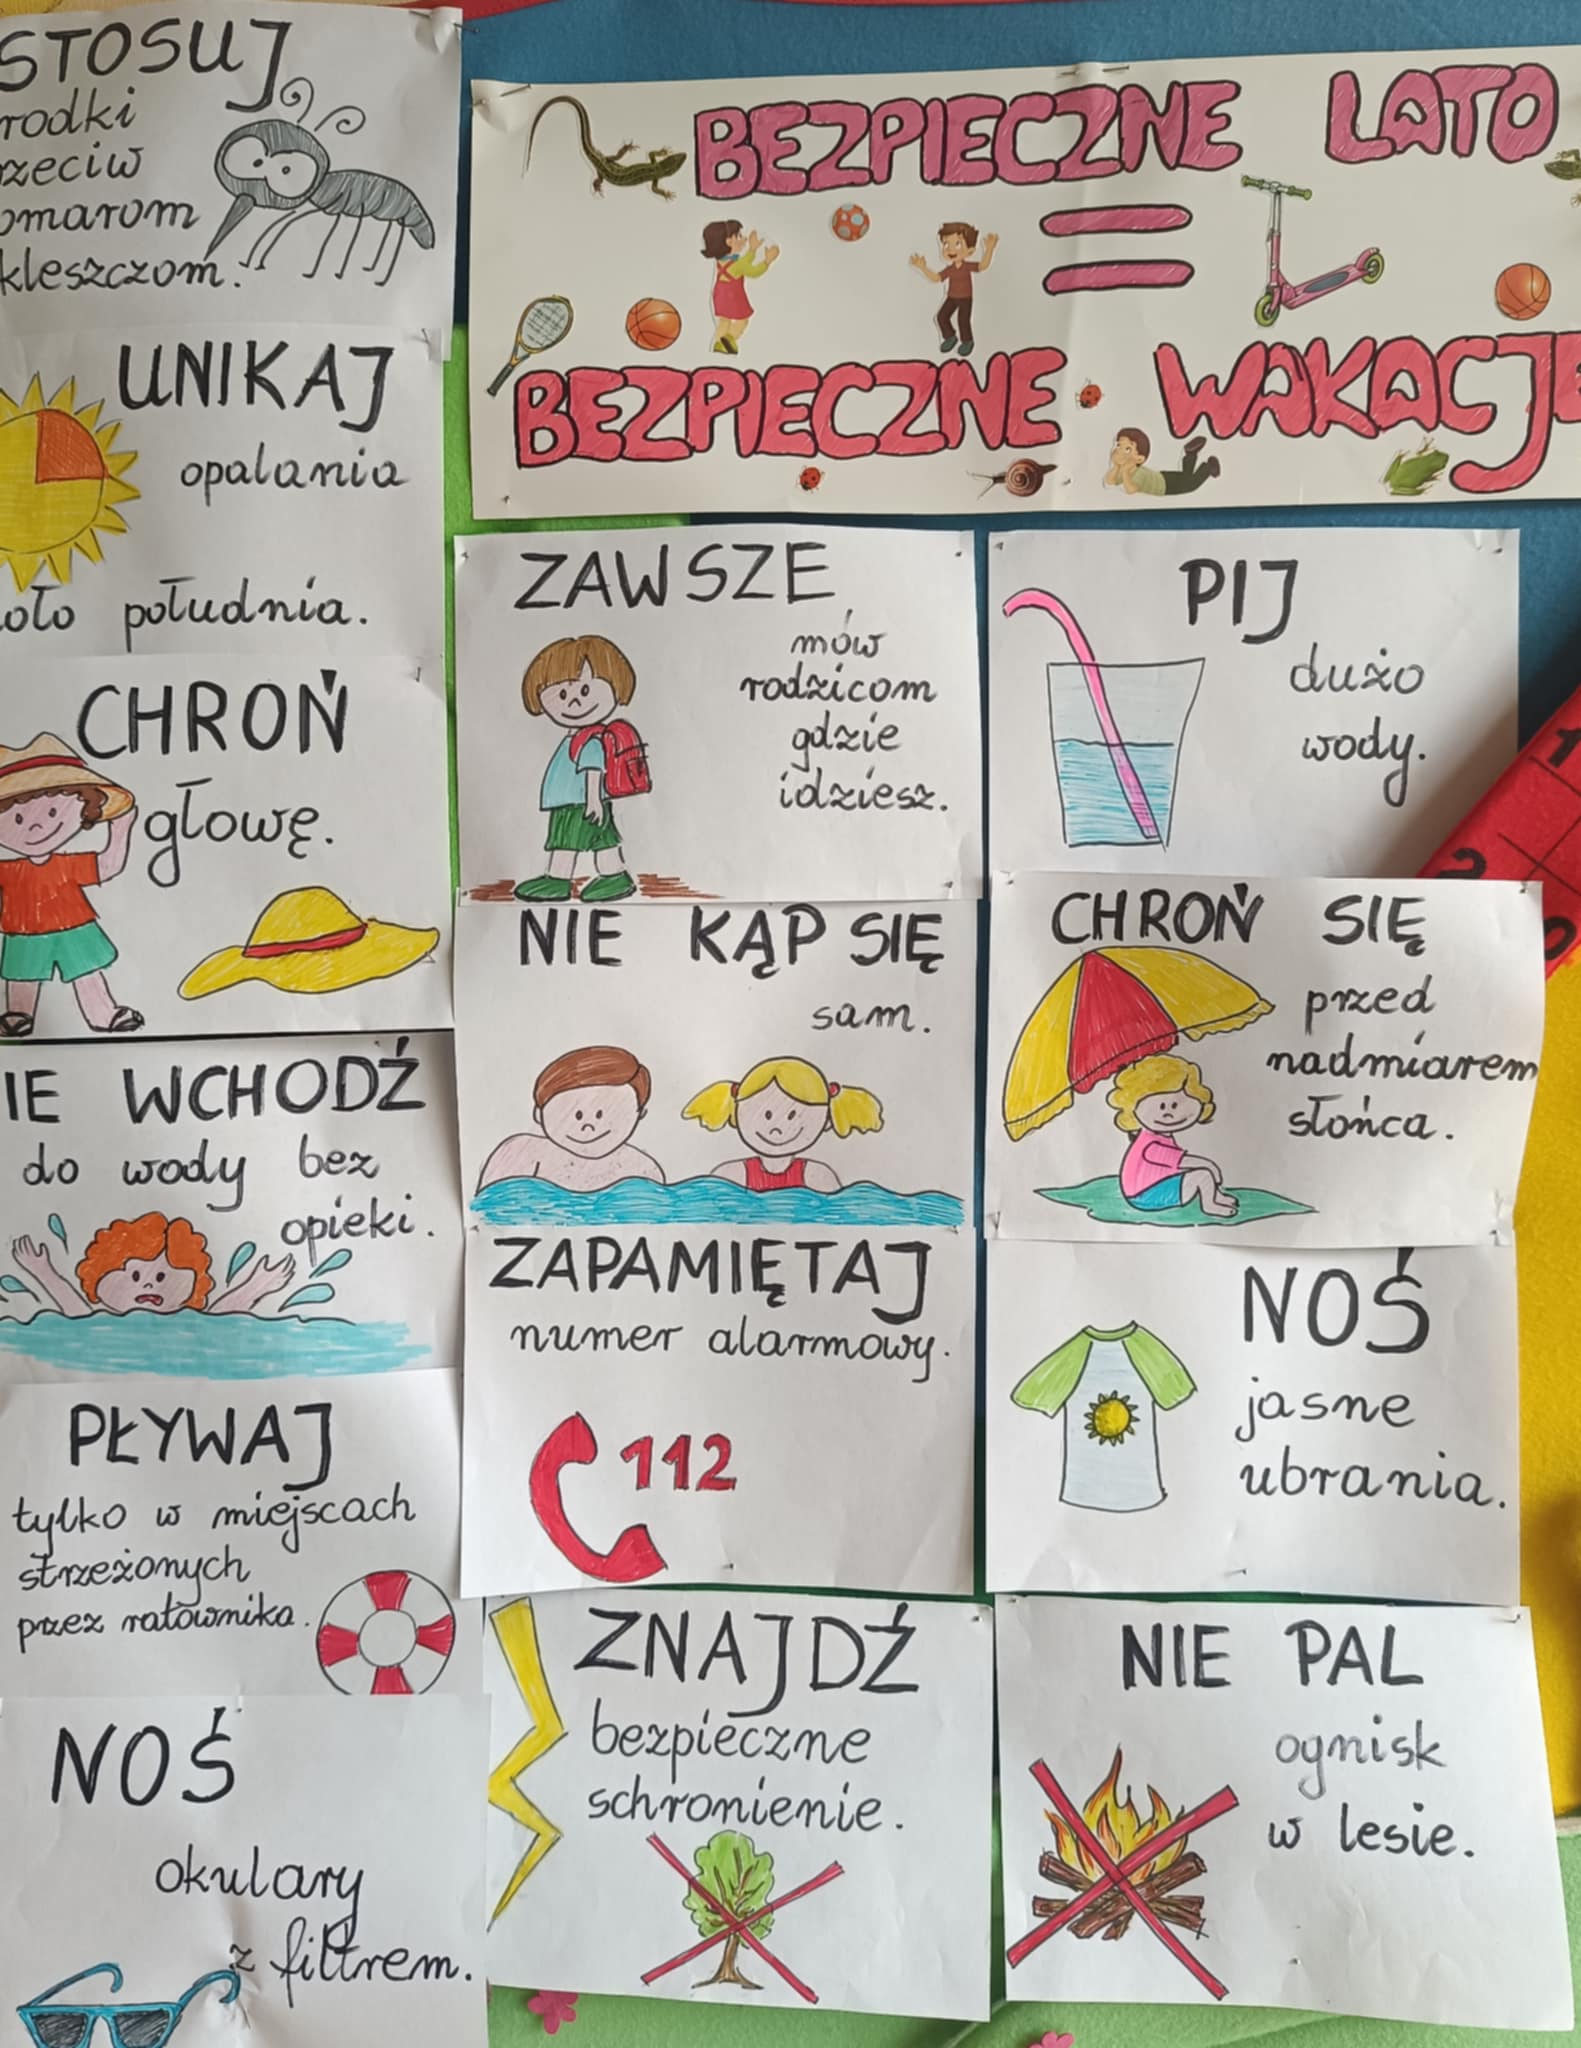 STOSUJ
rodki
rzeciw
omarom
kleszczom.
UNIKAJ
opalania
oło południa.
CHROŃ
głowę.
IE WCHODŹ
do wody bez
opieki.
PŁYWAJ
tylko w miejscach
strzeżonych
przez ratownika.
NOŚ
okulary
z filtrem.
BEZPIECZNE LATO
=
BEZPIECZNE WAKACJE
ZAWSZE
mów
rodzicom
gdzie
idziesz.
NIE KĄP SIĘ
sam.
ZAPAMIĘTAJ
numer alarmowy.
112
ZNAJDŹ
bezpieczne
schronienie.
PIJ
dużo
wody.
CHROŃ SIĘ
przed
nadmiarem
słońca.
NOŚ
jasne
ubrania.
NIE PAL
ognisk
w lesie.
1
2